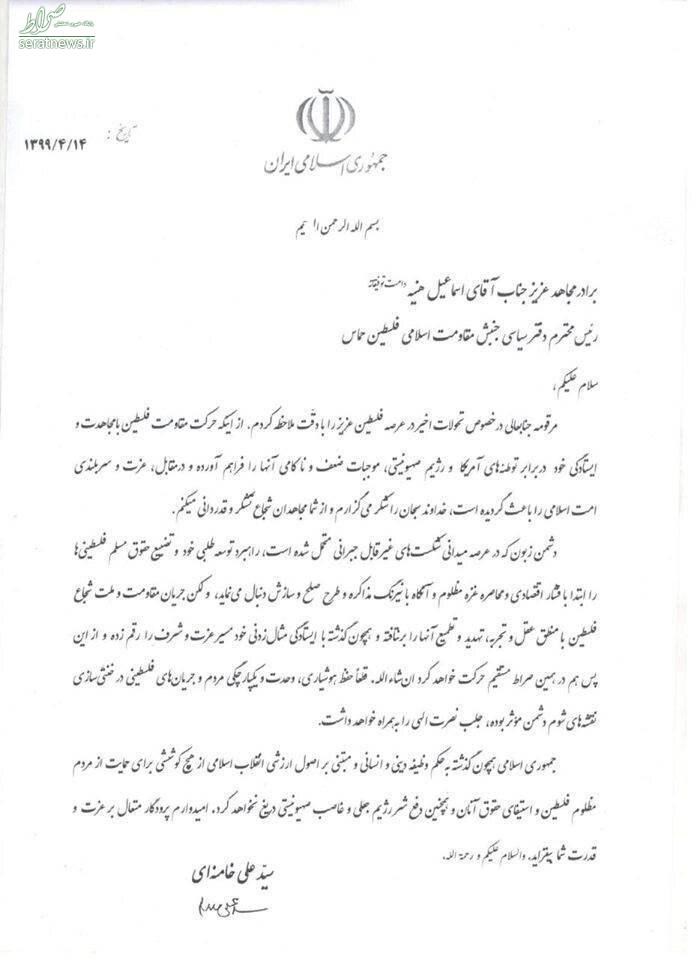 صراط
seratnews.ir
تاریخ :
۱۳۹۹/۴/۱۴
جمهوری اسلامی ایران
بسم الله الرحمن
برادر مجاهد عزیز جناب آقای اسماعیل هنیه دامت توفیقاته
رئیس محترم دفتر سیاسی جنبش مقاومت اسلامی فلسطین حماس
سلام علیکم،
مرقومه جنابعالی در خصوص تحولات اخیر در عرصه فلسطین عزیز را با دقّت ملاحظه کردم. از اینکه حرکت مقاومت فلسطین با مجاهدت و
ایستادگی خود در برابر توطئه‌های آمریکا و رژیم صهیونیتی، موجبات ضعف و ناکامی آنها را فراهم آورده و در مقابل، عزت و سربلندی
امت اسلامی را باعث گردیده است، خداوند سبحان را شکر می‌گزارم و از شما مجاهدان شجاع تشکر و قدردانی میکنم.
دشمن زبون که در عرصه میدانی شکست‌های غیر قابل جبرانی متحمل شده است، راهبرد توسعه طلبی خود و تضییع حقوق مسلم فلسطینی‌ها
را ابتدا با فشار اقتصادی و محاصره غزه مظلوم و آنگاه با نیرنگ مذاکره و طرح صلح و سازش دنبال می‌نماید، ولکن جریان مقاومت و ملت شجاع
فلسطین با منطق عقل و تجربه، تهدید و تطمیع آنها را برنتافته و همچون گذشته با ایستادگی مثال زدنی خود مسیر عزت و شرف را رقم زده و از این
پس هم در همین صراط مستقیم حرکت خواهد کرد ان‌شاءالله. قطعاً حفظ هوشیاری، وحدت و یکپارچگی مردم و جریان‌های فلسطینی در خنثی‌سازی
نقشه‌های شوم دشمن مؤثر بوده، جلب نصرت الهی را به همراه خواهد داشت.
جمهوری اسلامی همچون گذشته به حکم وظیفه دینی و انسانی و مبتنی بر اصول ارزشی انقلاب اسلامی از هیچ کوششی برای حمایت از مردم
مظلوم فلسطین و استیفای حقوق آنان و همچنین دفع شر رژیم جعلی و غاصب صهیونیتی دریغ نخواهد کرد. امیدوارم پروردگار متعال بر عزت و
قدرت شما بیفزاید. والسلام علیکم و رحمة الله.
سیّد علی خامنه‌ای